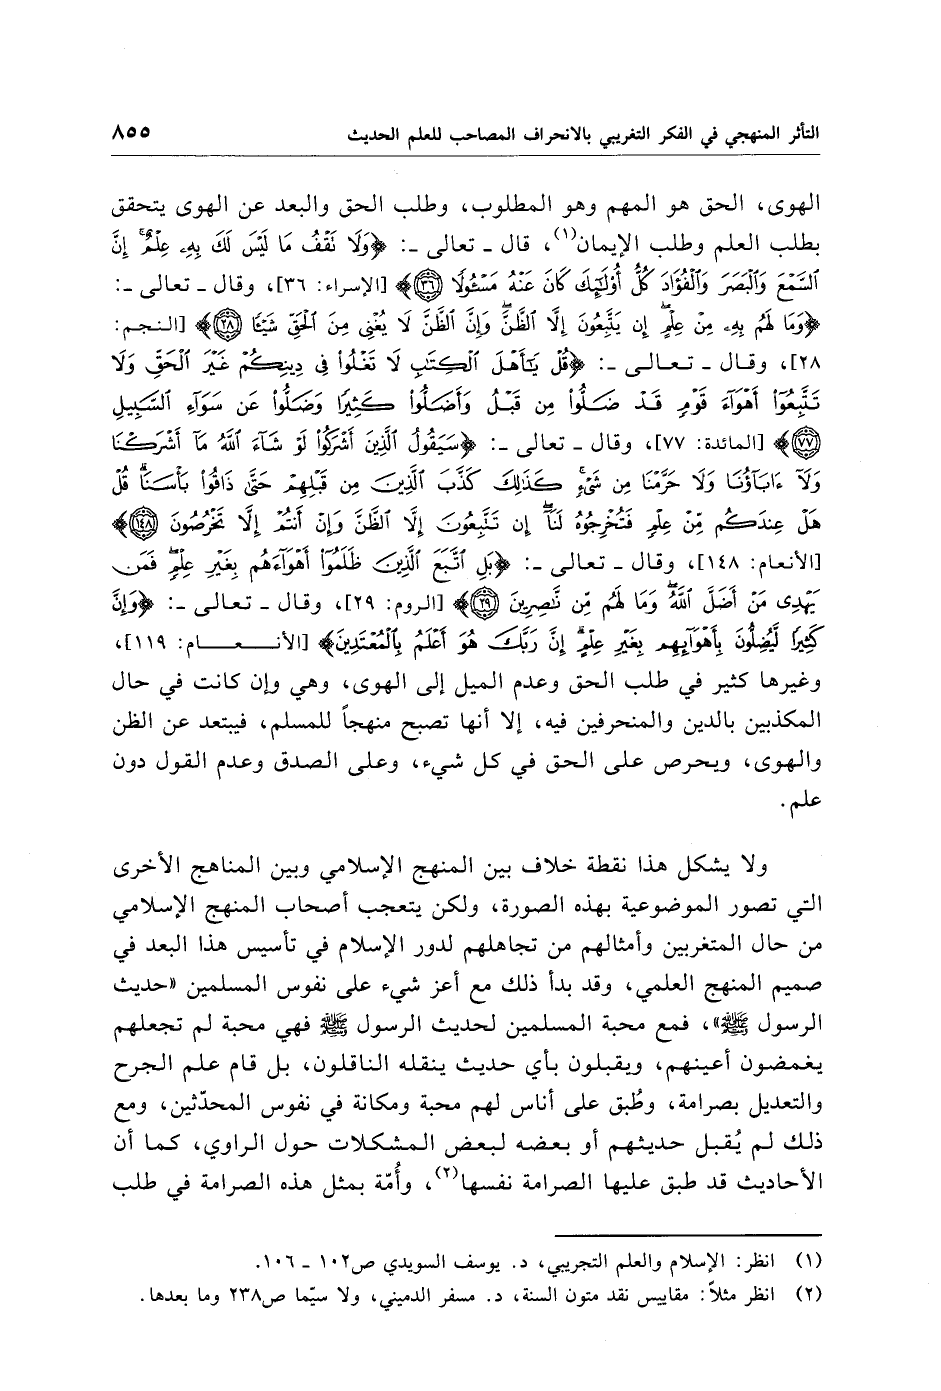 التأثر المنهجي في الفكر التغريبي بالانحراف المصاحب للعلم الحديث ٨٥٥
الهوى، الحق هو المهم وهو المطلوب، وطلب الحق والبعد عن الهوى يتحقق
بطلب العلم وطلب الإيمان(١)، قال ـ تعالى ـ: ﴿وَلَا نَقْفُ مَا لَيْسَ لَكَ بِهِۦ عِلْمٌۚ إِنَّ
ٱلسَّمْعَ وَٱلْبَصَرَ وَٱلْفُؤَادَ كُلُّ أُوْلَٰٓئِكَ كَانَ عَنْهُ مَسْـُٔولًا ٣٦﴾ [الإسراء: ٣٦]، وقال ـ تعالى ـ:
﴿وَمَا لَهُم بِهِۦ مِنْ عِلْمٍۖ إِن يَتَّبِعُونَ إِلَّا ٱلظَّنَّۖ وَإِنَّ ٱلظَّنَّ لَا يُغْنِى مِنَ ٱلْحَقِّ شَيْـًٔا ٢٨﴾ [النجم:
٢٨]، وقال ـ تعالى ـ: ﴿قُلْ يَٰٓأَهْلَ ٱلْكِتَٰبِ لَا تَغْلُوا۟ فِى دِينِكُمْ غَيْرَ ٱلْحَقِّ وَلَا
تَتَّبِعُوٓا۟ أَهْوَآءَ قَوْمٍ قَدْ ضَلُّوا۟ مِن قَبْلُ وَأَضَلُّوا۟ كَثِيرًا وَضَلُّوا۟ عَن سَوَآءِ ٱلسَّبِيلِ
٧٧﴾ [المائدة: ٧٧]، وقال ـ تعالى ـ: ﴿سَيَقُولُ ٱلَّذِينَ أَشْرَكُوا۟ لَوْ شَآءَ ٱللَّهُ مَآ أَشْرَكْنَا
وَلَآ ءَابَآؤُنَا وَلَا حَرَّمْنَا مِن شَىْءٍۚ كَذَٰلِكَ كَذَّبَ ٱلَّذِينَ مِن قَبْلِهِمْ حَتَّىٰ ذَاقُوا۟ بَأْسَنَاۗ قُلْ
هَلْ عِندَكُم مِّنْ عِلْمٍ فَتُخْرِجُوهُ لَنَآۖ إِن تَتَّبِعُونَ إِلَّا ٱلظَّنَّ وَإِنْ أَنتُمْ إِلَّا تَخْرُصُونَ ١٤٨﴾
[الأنعام: ١٤٨]، وقال ـ تعالى ـ: ﴿بَلِ ٱتَّبَعَ ٱلَّذِينَ ظَلَمُوٓا۟ أَهْوَآءَهُم بِغَيْرِ عِلْمٍۖ فَمَن
يَهْدِى مَنْ أَضَلَّ ٱللَّهُۖ وَمَا لَهُم مِّن نَّٰصِرِينَ ٢٩﴾ [الروم: ٢٩]، وقال ـ تعالى ـ: ﴿وَإِنَّ
كَثِيرًا لَّيُضِلُّونَ بِأَهْوَآئِهِم بِغَيْرِ عِلْمٍۗ إِنَّ رَبَّكَ هُوَ أَعْلَمُ بِٱلْمُعْتَدِينَ﴾ [الأنـعـام: ١١٩]،
وغيرها كثير في طلب الحق وعدم الميل إلى الهوى، وهي وإن كانت في حال
المكذبين بالدين والمنحرفين فيه، إلا أنها تصبح منهجاً للمسلم، فيبتعد عن الظن
والهوى، ويحرص على الحق في كل شيء، وعلى الصدق وعدم القول دون
علم.
ولا يشكل هذا نقطة خلاف بين المنهج الإسلامي وبين المناهج الأخرى
التي تصور الموضوعية بهذه الصورة، ولكن يتعجب أصحاب المنهج الإسلامي
من حال المتغربين وأمثالهم من تجاهلهم لدور الإسلام في تأسيس هذا البعد في
صميم المنهج العلمي، وقد بدأ ذلك مع أعز شيء على نفوس المسلمين «حديث
الرسول ﷺ»، فمع محبة المسلمين لحديث الرسول ﷺ فهي محبة لم تجعلهم
يغمضون أعينهم، ويقبلون بأي حديث ينقله الناقلون، بل قام علم الجرح
والتعديل بصرامة، وطُبق على أناس لهم محبة ومكانة في نفوس المحدّثين، ومع
ذلك لم يُقبل حديثهم أو بعضه لبعض المشكلات حول الراوي، كما أن
الأحاديث قد طبق عليها الصرامة نفسها(٢)، وأُمّة بمثل هذه الصرامة في طلب
(١) انظر: الإسلام والعلم التجريبي، د. يوسف السويدي ص١٠٢ ـ ١٠٦.
(٢) انظر مثلاً: مقاييس نقد متون السنة، د. مسفر الدميني، ولا سيّما ص٢٣٨ وما بعدها.